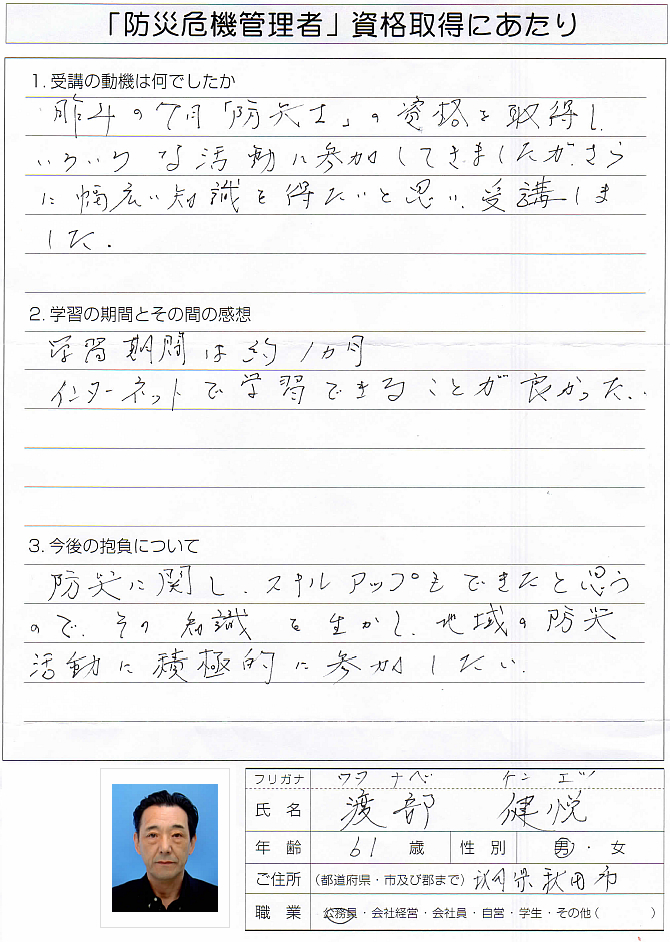 「防災危機管理者」資格取得にあたり
1. 受講の動機は何でしたか
昨年の7月「防災士」の資格を取得し、
いろいろな活動に参加してきましたが、さら
に幅広い知識を得たいと思い、受講しま
した。
2. 学習の期間とその間の感想
学習期間は約1カ月
インターネットで学習できることが良かった。
3. 今後の抱負について
防災に関し、スキルアップもできたと思う
ので、その知識を生かし、地域の防災
活動に積極的に参加したい。
フリガナ ワタナベ ケンエツ
氏名 渡部 健悦
年齢 61歳 性別 男・女
ご住所 (都道府県・市及び郡まで) 秋田県秋田市
職業 公務員・会社経営・会社員・自営・学生・その他( )